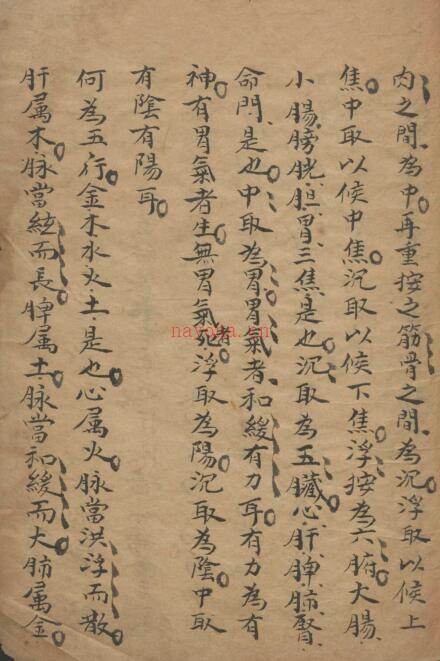 肉之間為中再重按之筋骨之間為沉浮取以候上
焦中取以候中焦沉取以候下焦浮按為六腑大腸
小腸膀胱胆胃三焦是也沉取為五臟心肝脾肺腎
命門是也中取為胃胃氣者和緩有力耳有力為有
神有胃氣者生無胃氣者死浮取為陽沉取為陰中取
有陰有陽耳
何為五行金木水火土是也心属火脉當洪浮而散
肝属木脉當絃而長脾属土脉當和緩而大肺属金
nayona.cn